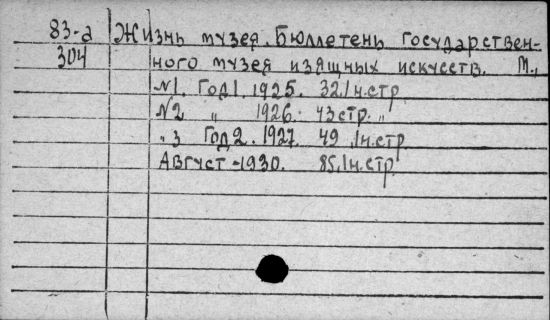 83-а Жизнь музея. Бюллетень Государствен-
304 ного музея изящных искусств. М.,
№1. Год 1. 1925. 32,1 н.стр
№2 „ 1926. 43 стр. „
„ 3 Год 2. 1927. 49,1 н.стр
Август-1930. 85,1 н.стр